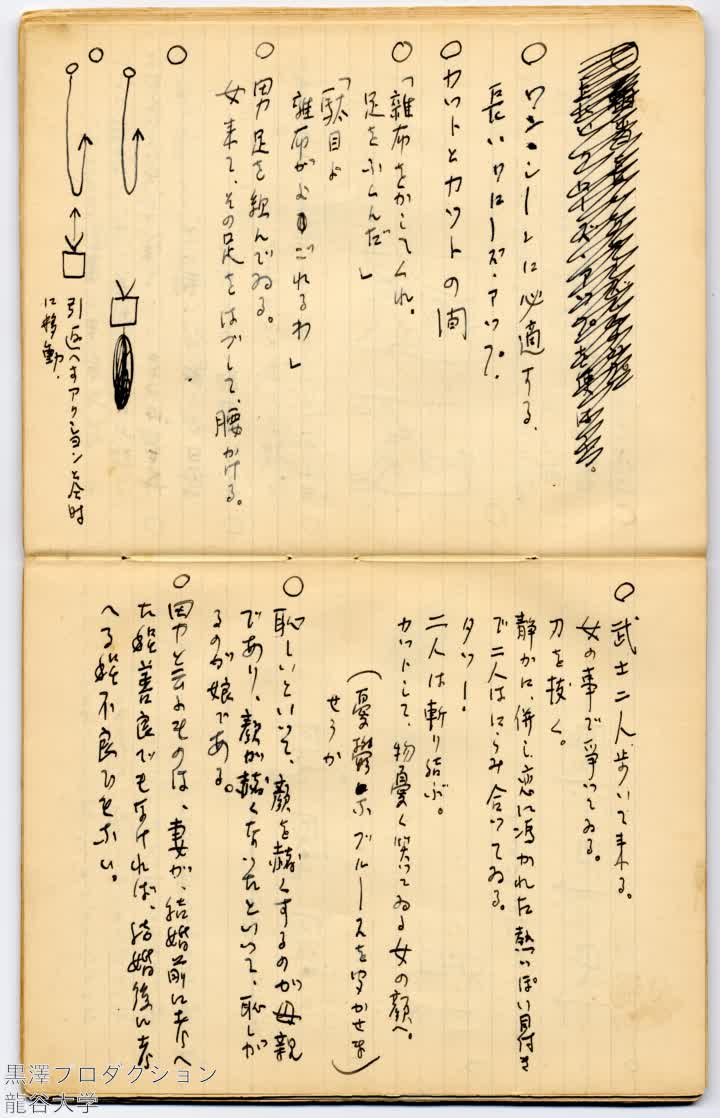 ○ ワンシーンに必適する、
長いクローズ・アップ。
○ カットとカットの間
○ 「雑布をかしてくれ。
足をふくんだ」
「駄目よ
雑布がよごれるわ」
○ 男足を組んでゐる。
女来て、その足をはづして、腰かける。
○
○
引返へすアクションと同時
に移動.
○ 武士二人歩いて来る。
女の事で爭ってゐる。
刀を抜く。
静かに、併し恋に憑かれた熱っぽい目付き
で二人はにらみ合ってゐる。
タッー！
二人は斬り結ぶ。
カットして、物憂く笑ってゐる女の顔へ。
(憂鬱なブルースを聞かせま
せうか)
○ 恥しいといって、顔を赫くするのが母親
であり、顔が赫くなったといって、恥しが
るのが娘である。
○ 男と云ふものは、妻が、結婚前に考へ
た程善良でもなければ、結婚後に考
へる程不良でもない。
黒澤プロダクション
龍谷大学